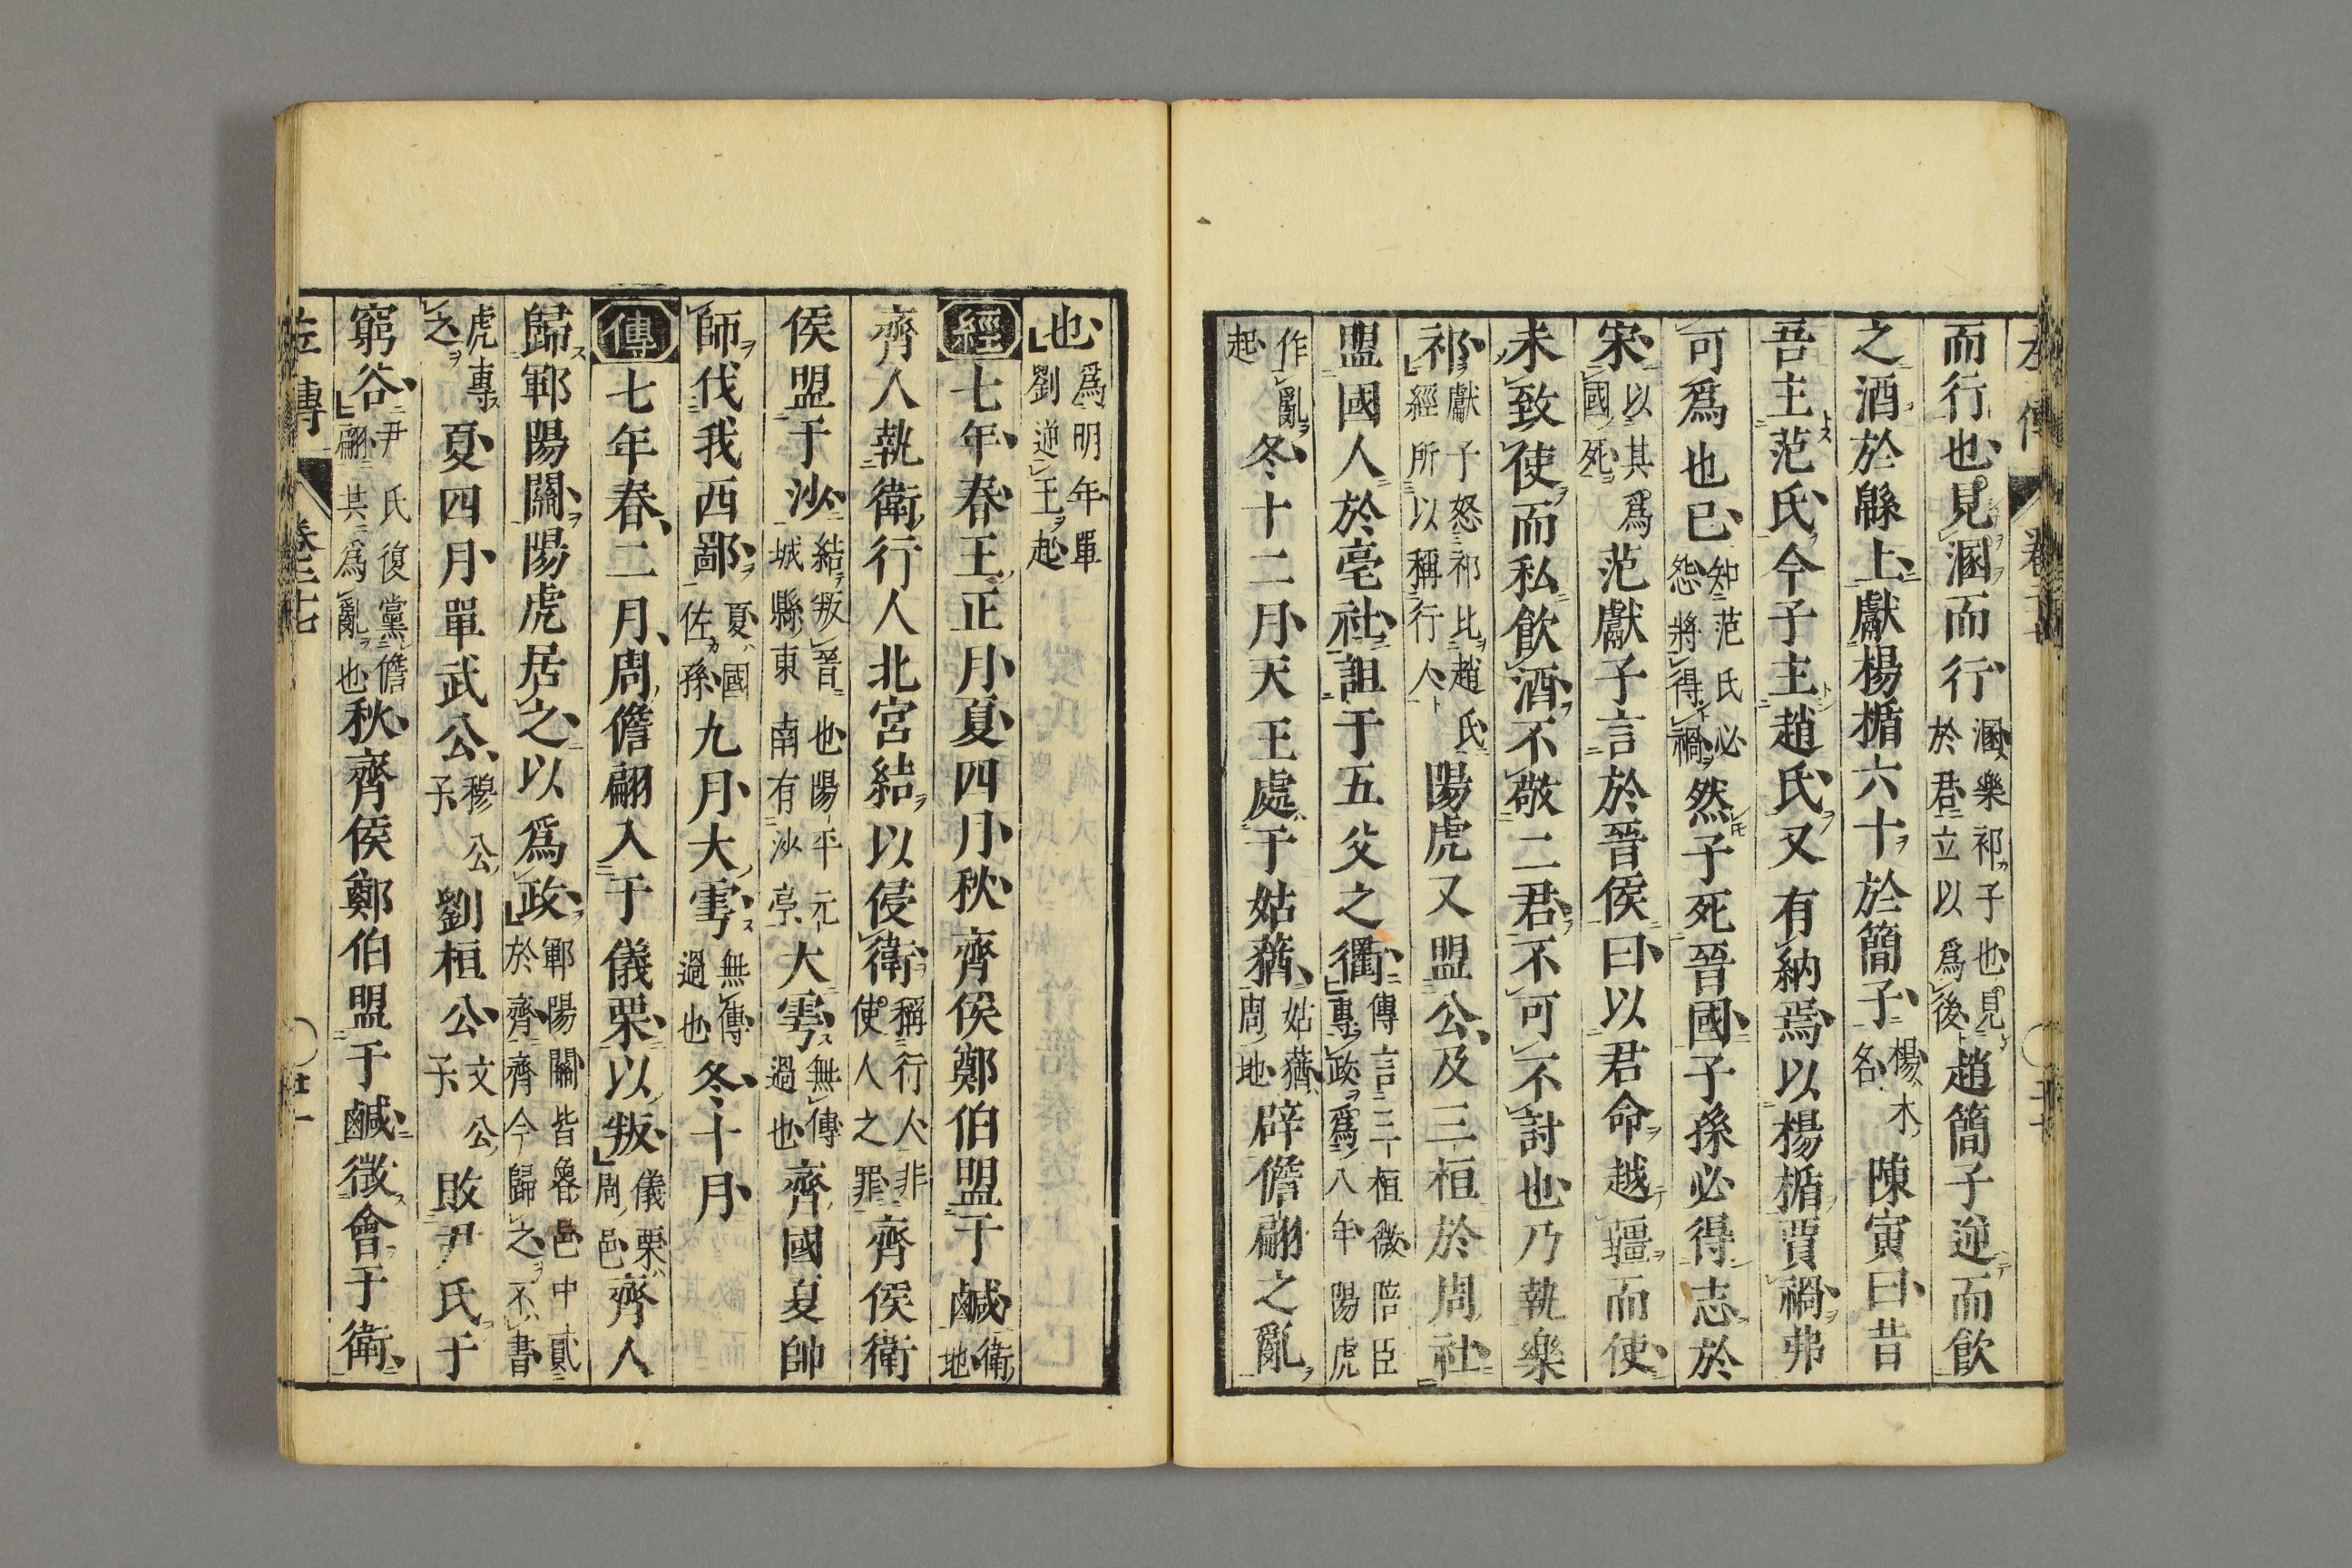 而行也見溷而行溷樂祁子也見於君立以爲後趙簡子逆而飲
之酒於緜上獻楊楯六十於簡子楊木名陳寅曰昔
吾主范氏今子主趙氏又有納焉以楊楯賈禍弗
可爲也已知范氏必怨將得禍然子死晉國子孫必得志於
宋以其爲國死范獻子言於晉侯曰以君命越疆而使
未致使而私飲酒不敬二君不可不討也乃執樂
祁獻子怒祁比趙氏經所以稱行人陽虎又盟公及三桓於周社
盟國人於亳社詛于五父之衢傳言三桓微陪臣專政爲八年陽虎
作亂起冬十二月天王處于姑蕕姑蕕周地辟儋翩之亂
也爲明年單劉逆王起
經七年春王正月夏四月秋齊侯鄭伯盟于鹹衛地
齊人執衛行人北宮結以侵衛稱行人非使人之罪齊侯衛
侯盟于沙結叛晉也陽平元城縣東南有沙亭大雩無傳過也齊國夏帥
師伐我西鄙夏國佐孫九月大雩無傳過也冬十月
傳七年春二月周儋翩入于儀栗以叛儀栗周邑齊人
歸鄆陽關陽虎居之以爲政鄆陽關皆魯邑中貳於齊齊今歸之不書
虎專之夏四月單武公穆公子劉桓公文公子敗尹氏于
窮谷尹氏復黨儋翩其爲亂也秋齊侯鄭伯盟于鹹徵會于衛
左傳 卷二十七 廿一